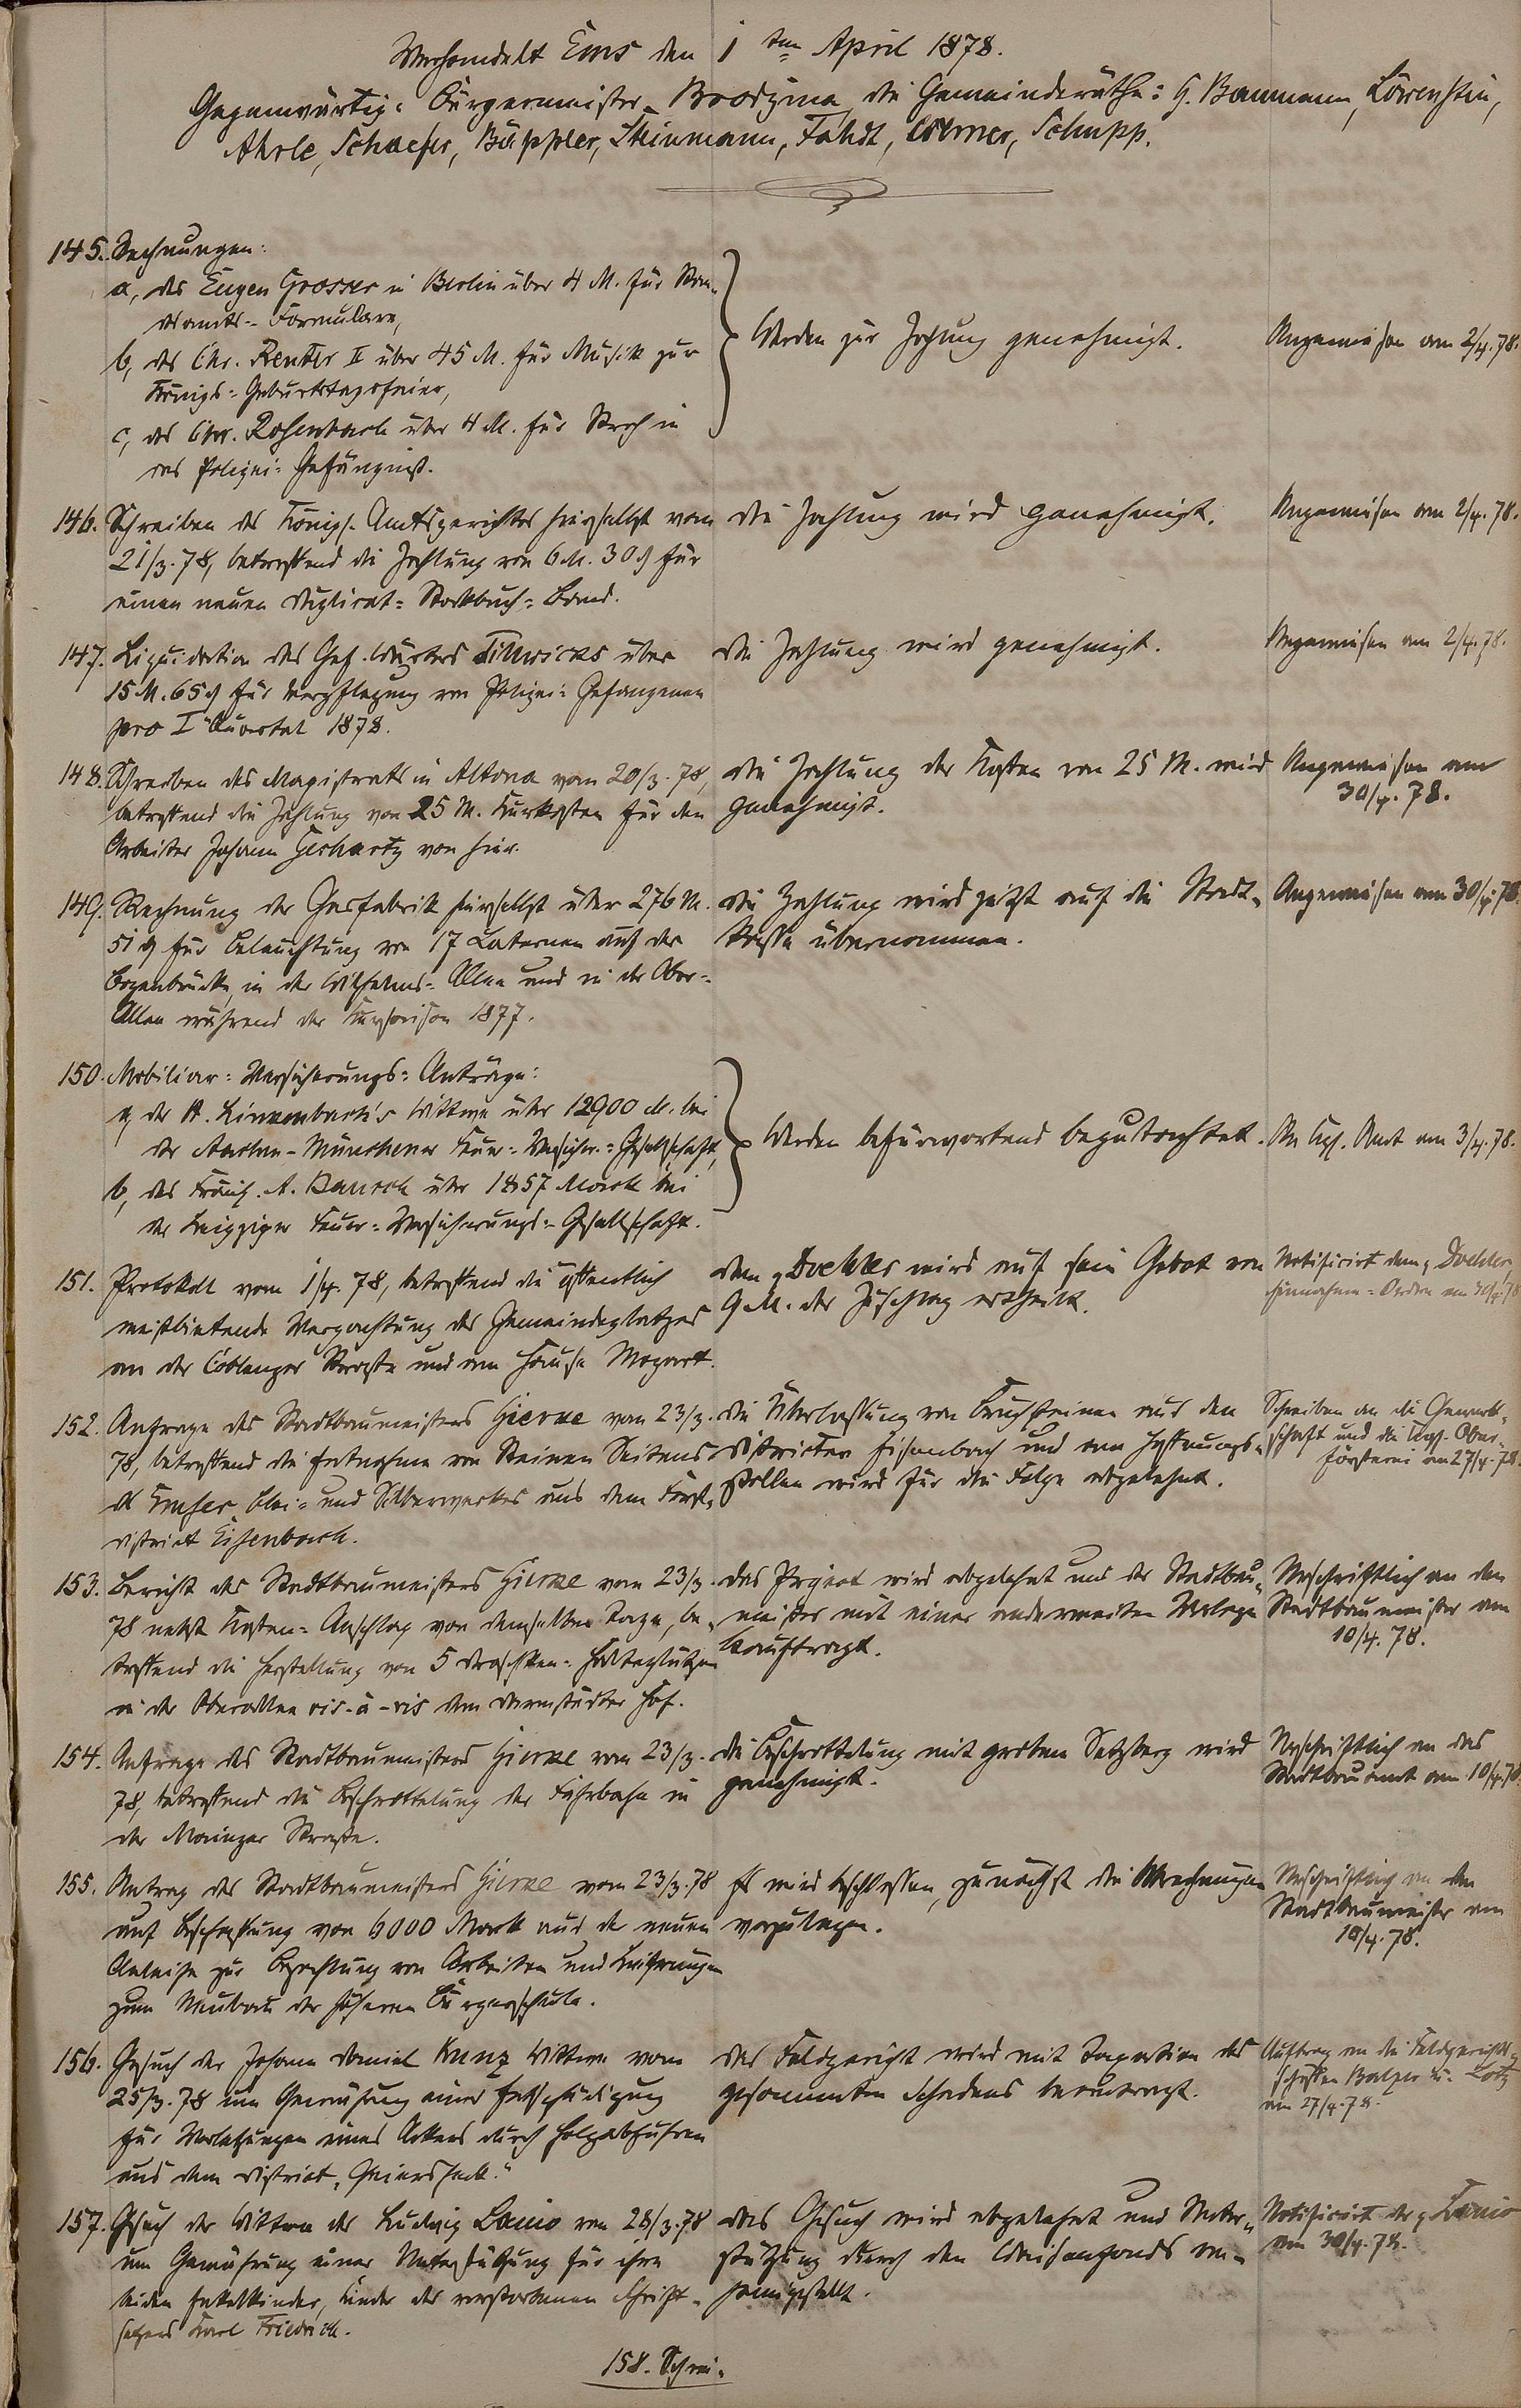 Verhandelt Ems den 1ten April 1878.
Gegenwärtig: Bürgermeister die Gemeinderäthe: G. Baumann, Löwenstein,
Ahrle, Schaefer, Bäppler, Steinmann, Fahdt, Schupp.
145. Rechnungen:
a, des Eugen Grosser in Berlin über 4 M. für Stan-
desamts-Formulare,
b, des Chr. Reuter II über 45 M. für Musik zur
Königs-Geburtstagsfeier,
c, des Chr. Rosenbach über 4 M. für Stroh in
das Polizei-Gefängniß.
Werden zur Zahlung genehmigt.
Angewiesen am 2/4.78.
146. Schreiben des Königl. Amtsgerichtes hierselbst vom
21/3.78, betreffend die Zahlung von 6 M. 30 ₰ für
einen neuen Duplicat-Stockbuch-Band.
Die Zahlung wird genehmigt.
Angewiesen am 2/4.78.
147. Liquidation des Gef. Wärters über
15 M. 65 ₰ für Verpflegung von Polizei-Gefangenen
pro I Quartal 1878.
Die Zahlung wird genehmigt.
Angewiesen am 2/4.78.
148. Schreiben des Magistrats in Altona vom 20/3.78,
betreffend die Zahlung von 25 M. Kurkosten für den
Arbeiter Johann Gerhartz von hier.
Die Zahlung der Kosten von 25 M. wird
genehmigt.
Angewiesen am
30/4.78.
149. Rechnung der Gasfabrik hierselbst über 276 M.
51 ₰ für Beleuchtung von 17 Laternen auf der
Bogenbrücke, in der Wilhelms-Allee und in der Ober-
Allee während der Kursaison 1877.
Die Zahlung wird jetzt auf die Stadt-
kasse übernommen.
Angewiesen am 30/4.78.
150. Mobiliar-Versicherungs-Anträge:
a, der A. Linkenbach's Wittwe über 12900 M. bei
der Aachen-Münchener Feuer-Versicher.-Gesellschaft,
b, des A. Bausch über 1857 Mark bei
der Leipziger Feuer-Versicherungs-Gesellschaft.
Werden befürwortend begutachtet.
An Kgl. Amt am 3/4.78.
151. Protokoll vom 1/4.78, betreffend die öffentlich
meistbietende Verpachtung des Gemeindeplatzes
an der Coblenzer Straße und am Hause Mozart.
Dem p. Doehler wird auf sein Gebot von
9 M. der Zuschlag ertheilt.
Notificirt dem p. Doehler,
Einnahme-Ordre am 30/4.78
152. Anfrage des Stadtbaumeisters Gierke vom 23/3.
78, betreffend die Entnahme von Steinen Seitens
des Emser Blei- und Silberwerkes aus dem Forst-
district Eisenbach.
Die Überlassung von Bruchsteinen aus den
Districten Eisenbach und am Hoffnungs-
stollen wird für die Folge abgelehnt.
Schreiben an die Gewerk-
schaft und die Kgl. Ober-
försterei am 27/4.78.
153. Bericht des Stadtbaumeisters Gierke vom 23/3.
78 nebst Kosten-Anschlag von demselben Tage, be-
treffend die Herstellung von 5 Droschken-Halteplätzen
in der Oberallee vis-à-vis dem Darmstädter Hof.
Das Project wird abgelehnt und der Stadtbau-
meister mit einer anderweiten Vorlage
beauftragt.
Urschriftlich an den
Stadtbaumeister am
10/4.78.
154. Anfrage des Stadtbaumeisters Gierke vom 23/3.
78, betreffend die Beschotterung der Fahrbahn in
der Mainzer Straße.
Die Beschotterung mit grobem wird
genehmigt.
Urschriftlich an das
Stadtbauamt am 10/4.78.
155. Antrag des Stadtbaumeisters Gierke vom 23/3.78
auf Beschaffung von 6000 Mark aus der neuen
Anleihe zur Bezahlung von Arbeiten und Lieferungen
zum Neubau der höheren Bürgerschule.
Es wird beschlossen, zunächst die Abrechnungen
vorzulegen.
Urschriftlich an den
Stadtbaumeister am
10/4.78.
156. Gesuch der Johann Daniel Kunz Wittwe vom
25/3.78 um Gewährung einer Entschädigung
für Verletzungen eines Ackers durch Holzabfuhren
aus dem District „Geiersheck."
Das Feldgericht wird mit Taxation des
gesammten Schadens beauftragt.
Auftrag an die Feldgerichts-
schöffen Balzer u. Lotz
am 27/4.78.
157. Gesuch der Wittwe des Ludwig Lanio vom 28/3.78
um Gewährung einer Unterstützung für ihre
beiden Enkelkinder, Kinder des verstorbenen Schrift-
setzers Karl Friedrich.
Das Gesuch wird abgelehnt und Unter-
stützung durch den Waisenfonds an-
heimgestellt.
Notificirt der p. Lanio
am 30/4.78.
158. Schrei-